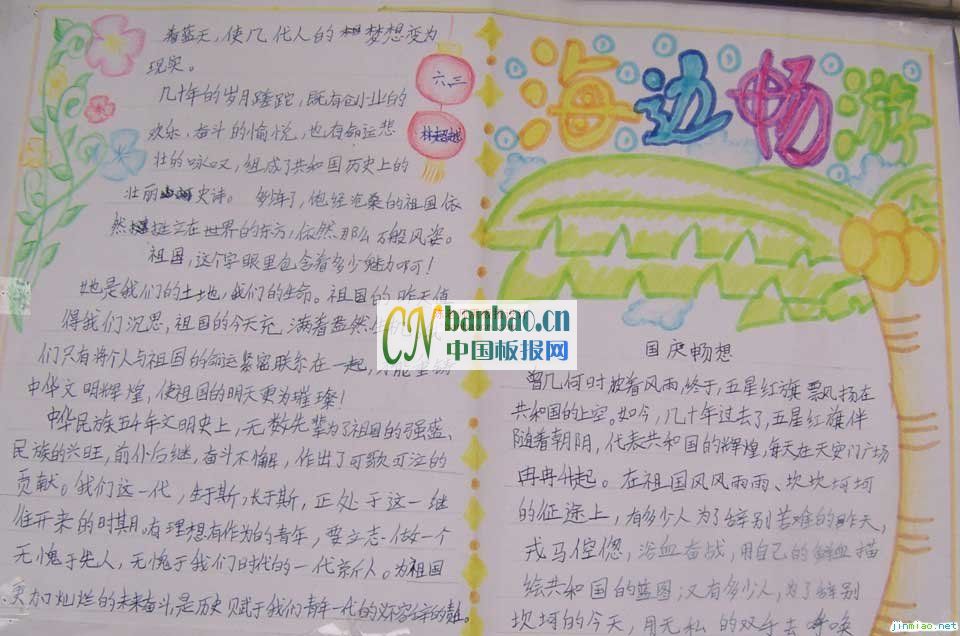 看蓝天，使几代人的梦想变为
现实。
几十年的岁月蹉跎，既有创业的
欢乐、奋斗的愉悦，也有命运悲
壮的咏叹，组成了共和国历史上的
壮丽史诗。多年了，饱经沧桑的祖国依
然挺立在世界的东方，依然那么万般风姿。
祖国，这个字眼里包含着多少魅力啊！
她是我们的土地，我们的生命。祖国的昨天值
得我们沉思，祖国的今天充满着盎然生
们只有将个人与祖国的命运紧密联系在一起，
中华文明辉煌，使祖国的明天更为璀璨！
中华民族五千年文明史上，无数先辈为了祖国的强盛、
民族的兴旺，前仆后继，奋斗不懈，作出了可歌可泣的
贡献。我们这一代，生于斯，长于斯，正处于这一继
往开来的时期，有理想有作为的青年，要立志做一个
无愧于先人，无愧于我们时代的一代新人。为祖国
更加灿烂的未来奋斗，是历史赋于我们青年一代的
六.三
海边畅游
国庆畅想
曾几何时披着风雨，终于，五星红旗飘扬在
共和国的上空。如今，几十年过去了，五星红旗伴
随着朝阴，代表共和国的辉煌，每天在天安门广场
冉冉升起。在祖国风风雨雨、坎坎坷坷
的征途上，有多少人为了辞别苦难的昨天，
戎马倥偬，浴血奋战，用自己的鲜血描
绘共和国的蓝图；又有多少人，为了辞别
坎坷的今天，用无私的双手去呼唤
CN banbao.cn
中国板报网
jinmiao.net